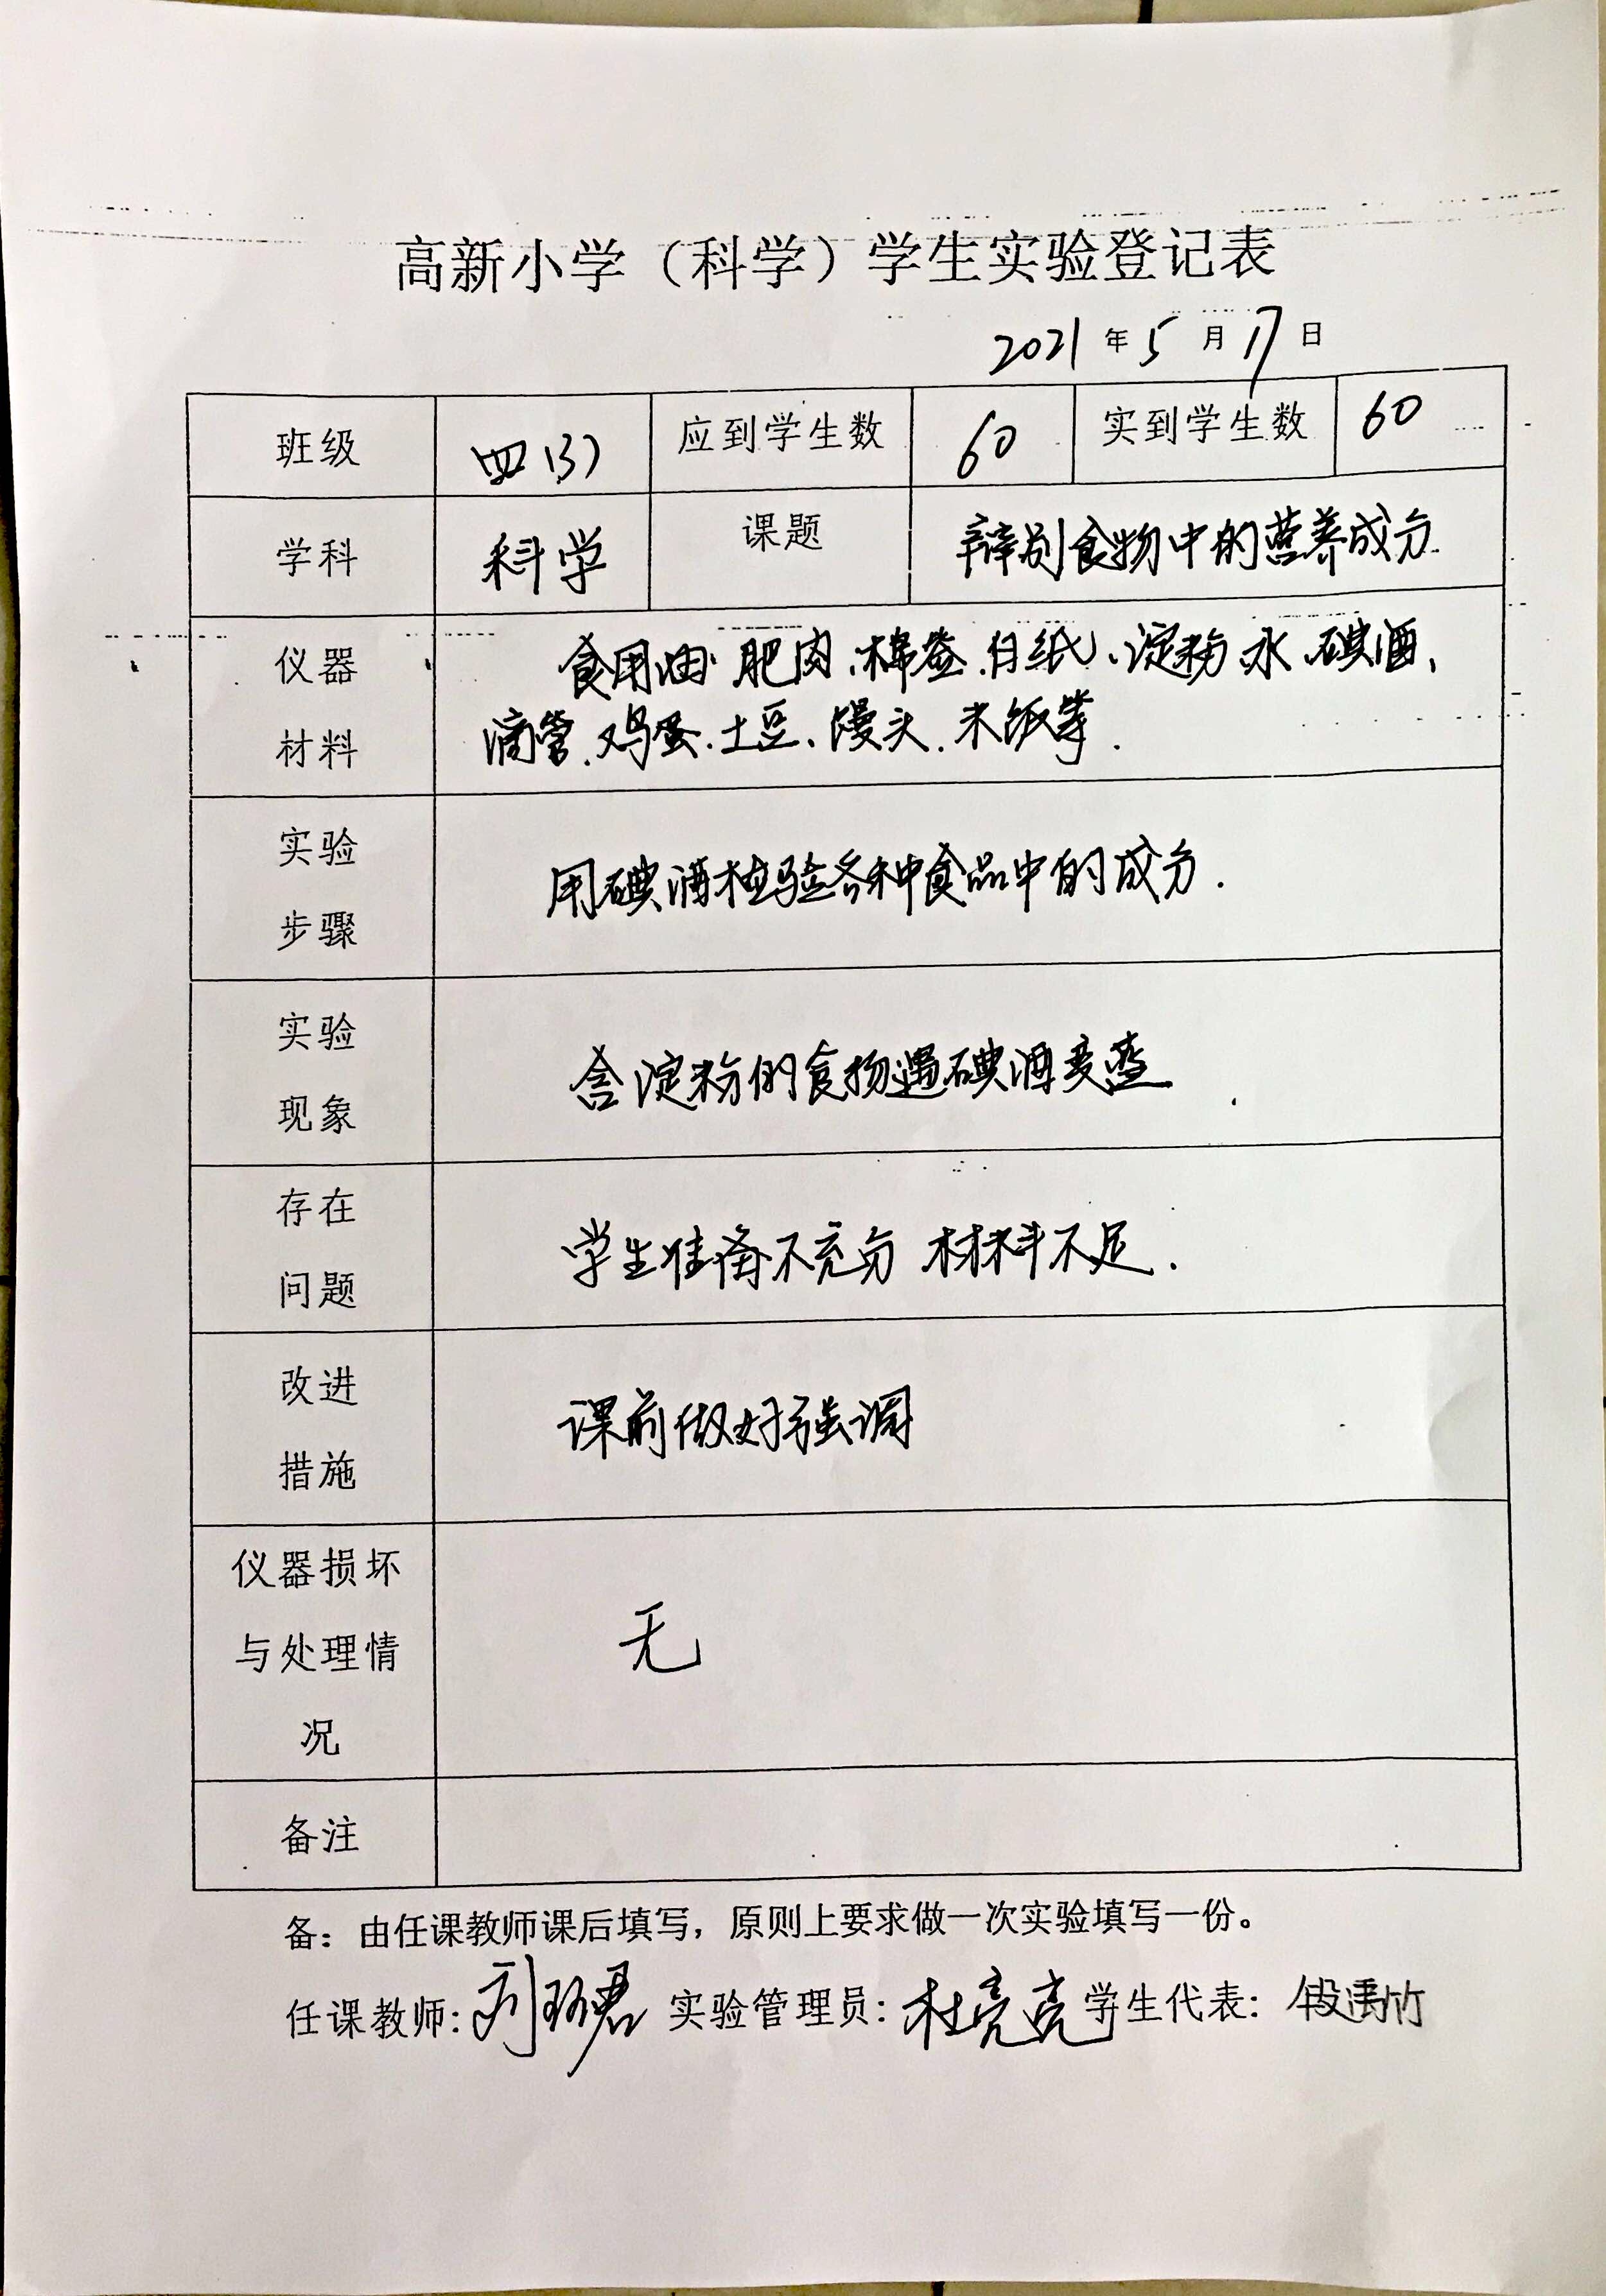 高新小学（科学）学生实验登记表
2021 年 5 月 17 日
班级 四(3) 应到学生数 60 实到学生数 60
学科 科学 课题 辩别食物中的营养成分.
仪器 食用油、肥肉、棉签、白纸、淀粉、水、碘酒、
材料 滴管、鸡蛋、土豆、馒头、米饭等.
实验
步骤
用碘酒检验各种食品中的成分.
实验
现象
含淀粉的食物遇碘酒变蓝
存在
问题
学生准备不充分 材料不足.
改进
措施
课前做好强调
仪器损坏
与处理情
况
无
备注
备：由任课教师课后填写，原则上要求做一次实验填写一份。
任课教师: 刘 实验管理员: 杜亮亮 学生代表: 段禹竹